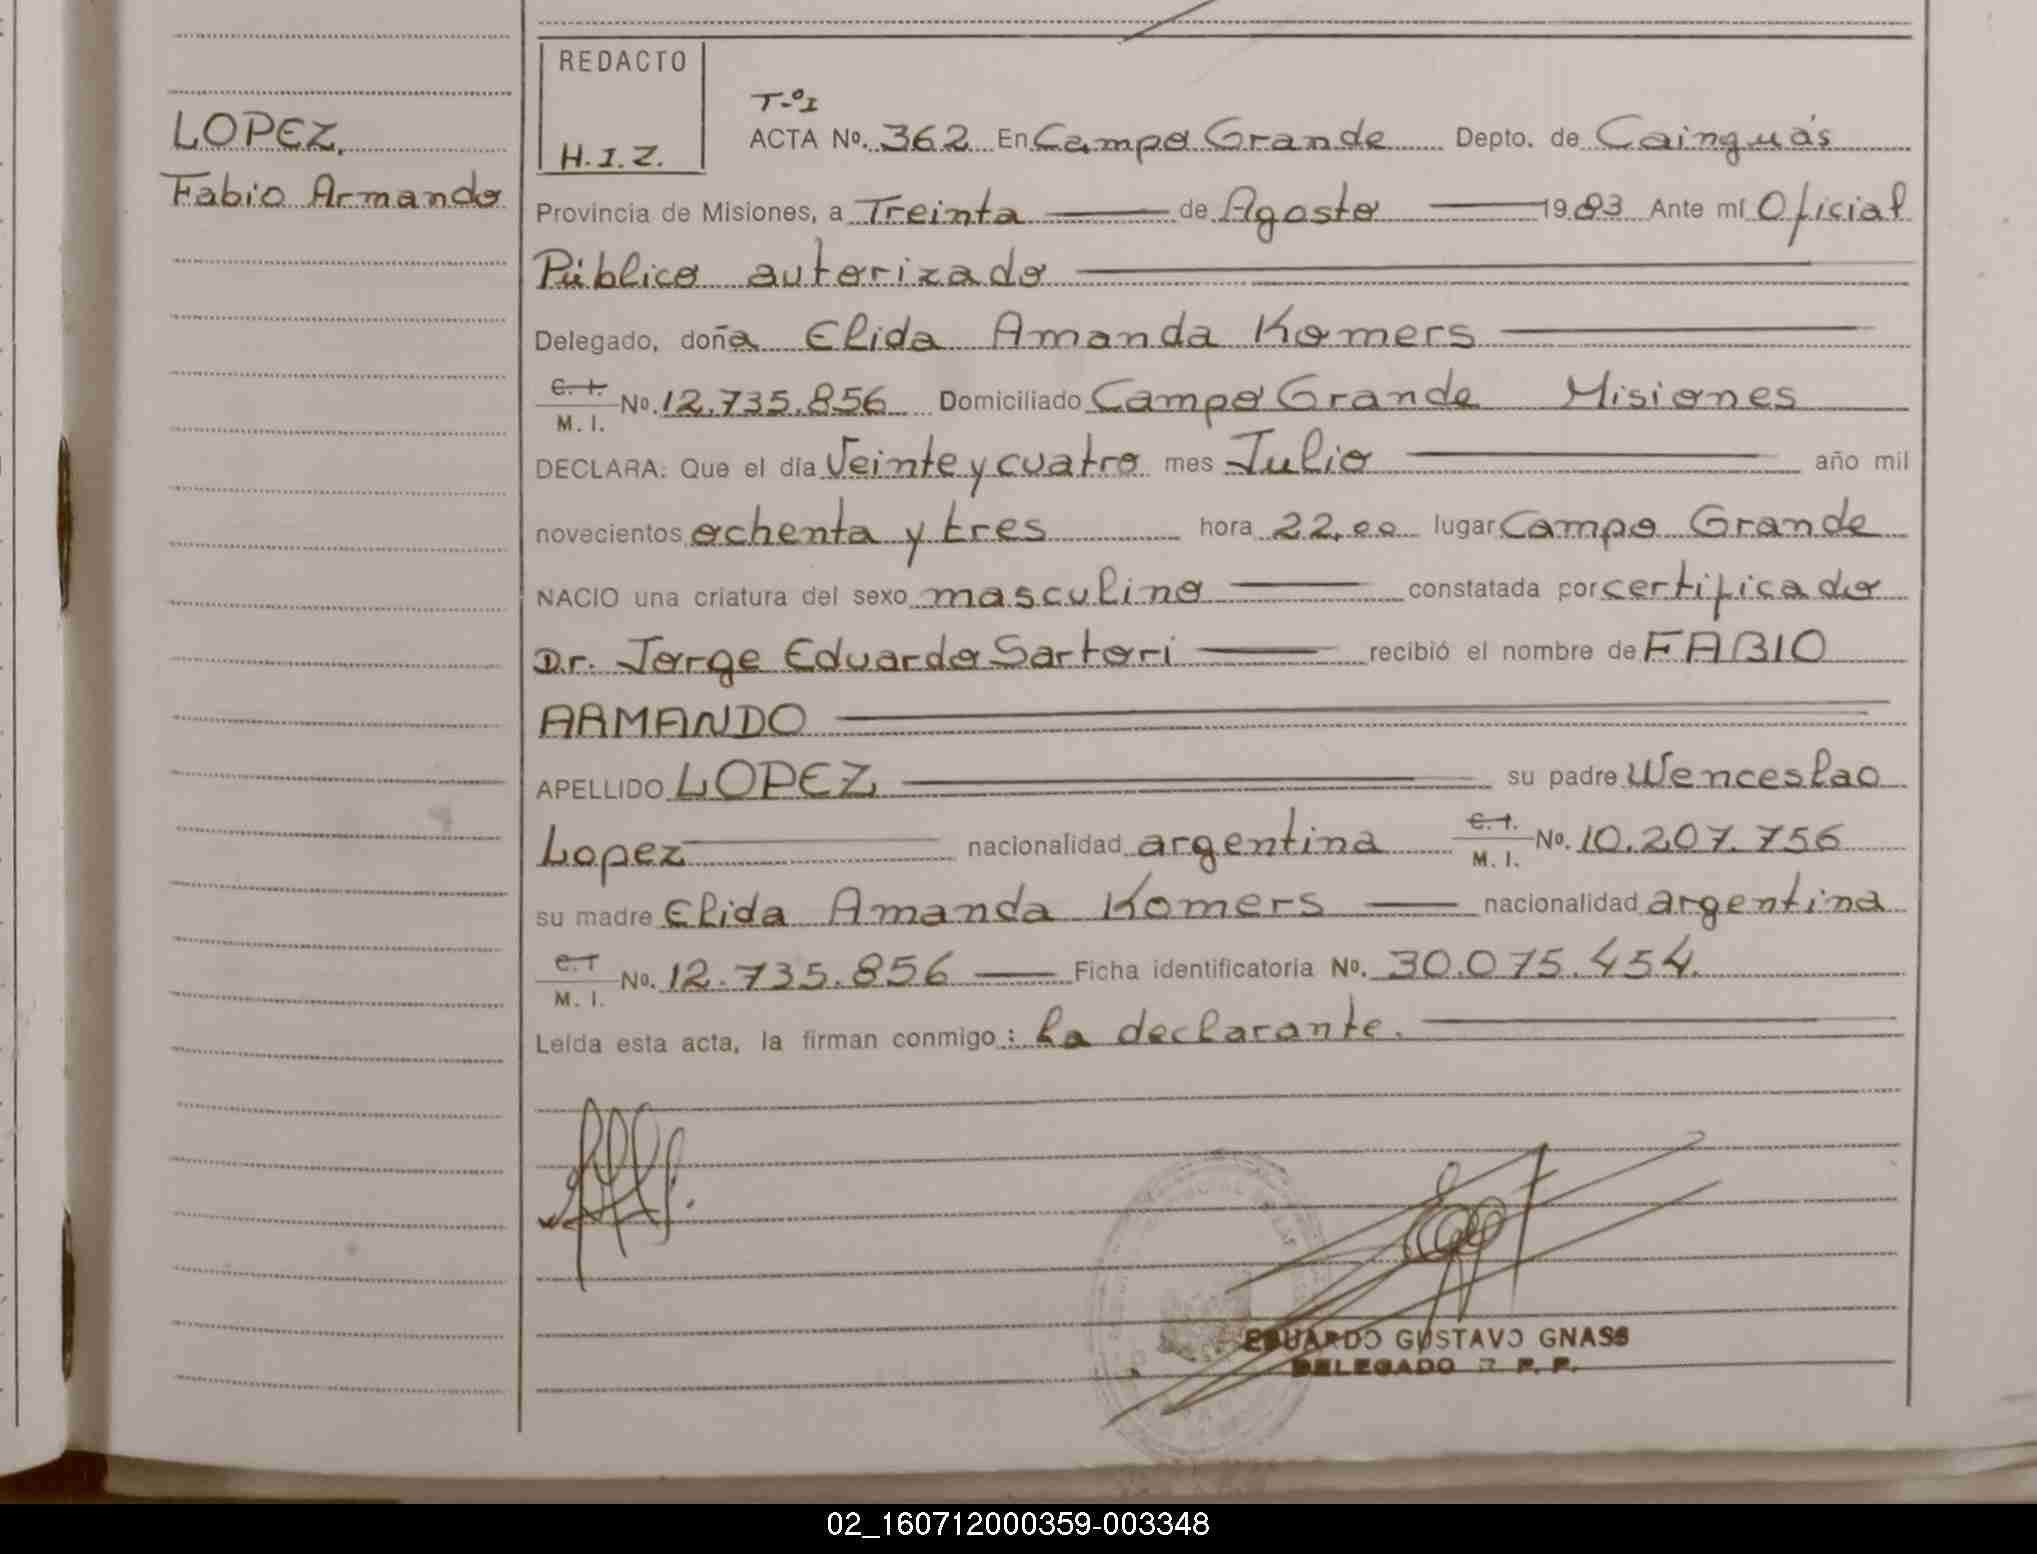 LOPEZ,
Fabio Armando
REDACTO
H.I.Z.
T-º I
ACTA Nº. 362 En Campo Grande Depto. de Cainguás
Provincia de Misiones, a Treinta de Agosto 1983 Ante mí Oficial
Público autorizado
Delegado, doña Elida Amanda Komers
C.I.
M. I. Nº. 12.735.856 Domiciliado Campo Grande Misiones
DECLARA: Que el día Veinte y cuatro mes Julio año mil
novecientos ochenta y tres hora 22,00 lugar Campo Grande
NACIO una criatura del sexo masculino constatada por certificado
Dr. Jorge Eduardo Sartori recibió el nombre de FABIO
ARMANDO
APELLIDO LOPEZ su padre Wenceslao
Lopez nacionalidad argentina C.I. M. I. Nº. 10.207.756
su madre Elida Amanda Komers nacionalidad argentina
C.I
M. I. Nº. 12.735.856 Ficha identificatoria Nº. 30.075.454.
Leída esta acta, la firman conmigo: La declarante.
EDUARDO GUSTAVO GNASS
DELEGADO R. P. P.
02_160712000359-003348